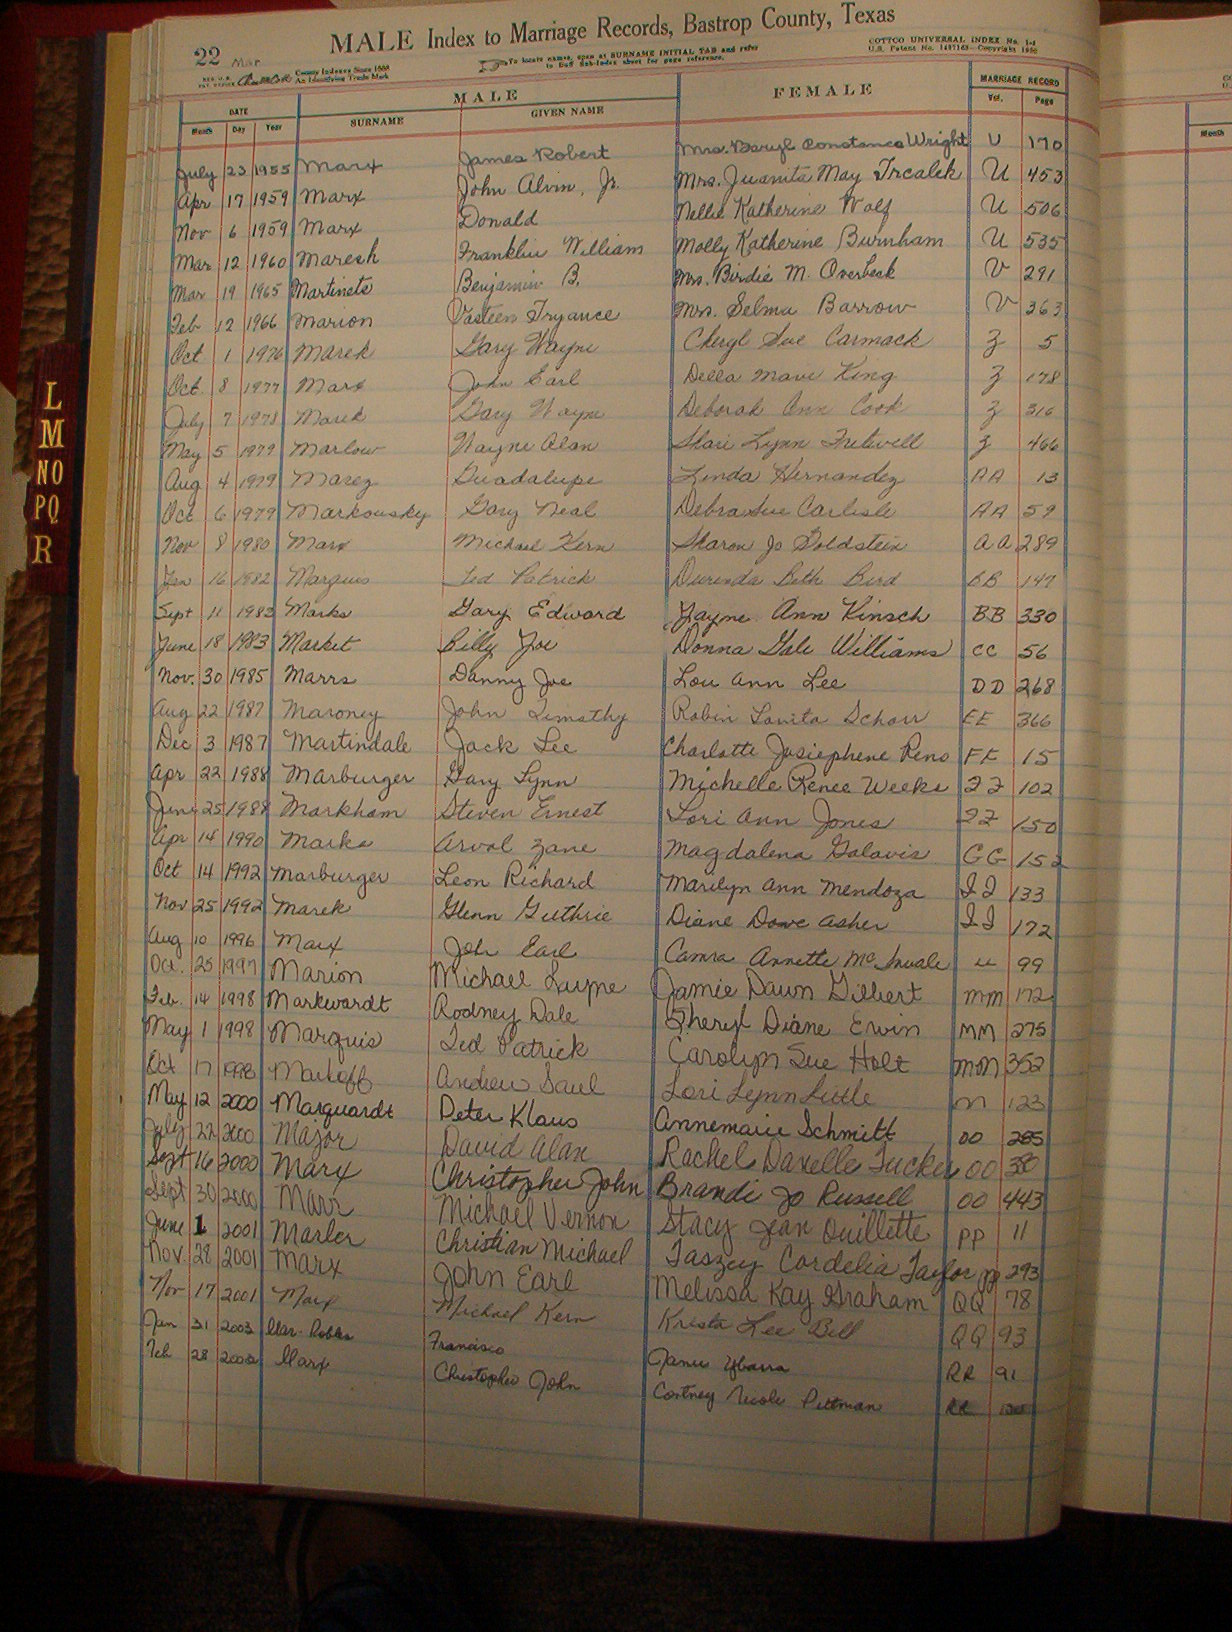 22 Mar
MALE Index to Marriage Records, Bastrop County, Texas
REG. U.S. PAT. OFFICE County Indexes Since 1888 An Identifying Trade Mark
To locate names, open at SURNAME INITIAL TAB and refer to Buff Sub-Index sheet for page reference.
COTTCO UNIVERSAL INDEX No. 1-1
U.S. Patent No. Copyright
DATE MALE FEMALE MARRIAGE RECORD
Month Day Year SURNAME GIVEN NAME Vol. Page
July 23 1955 Marx James Robert Mrs. Beryl Constance Wright U 170
Apr 17 1959 Marx John Alvin, Jr. Mrs. Juanita May Trcalek U 453
Nov 6 1959 Marx Donald Nellie Katherine Wolf U 506
Mar 12 1960 Maresh Franklin William Molly Katherine Burnham U 535
Mar 19 1965 Martinets Benjamin B. Mrs. Birdie M. Overbeck V 291
Feb 12 1966 Marion Vasteen Tryance Mrs. Selma Barrow V 363
Oct 1 1976 Marek Gary Wayne Cheryl Sue Carmack Z 5
Oct 8 1977 Marx John Earl Della Marie King Z 178
July 7 1978 Marek Gary Wayne Deborah Ann Cook Z 316
May 5 1979 Marlow Wayne Alan Shari Lynn Fretwell Z 466
Aug 4 1979 Marez Guadalupe Linda Hernandez AA 13
Oct 6 1979 Markowsky Gary Neal Debra Sue Carlisle AA 59
Nov 8 1980 Marx Michael Kern Sharon Jo Goldstein AA 289
Jan 16 1982 Marquis Ted Patrick Durinda Beth Bird BB 147
Sept 11 1982 Marks Gary Edward Jayne Ann Kinsch BB 330
June 18 1983 Market Billy Joe Donna Gale Williams CC 56
Nov. 30 1985 Marrs Danny Joe Lou Ann Lee DD 268
Aug 22 1987 Maroney John Timothy Robin Lavita Schorr EE 366
Dec 3 1987 Martindale Jack Lee Charlotte Josiephene Reno FF 15
Apr 22 1988 Marburger Gary Lynn Michelle Renee Weeks FF 102
June 25 1988 Markham Steven Ernest Lori Ann Jones FF 150
Apr 14 1990 Marks Arvol Zane Magdalena Galavis GG 152
Oct 14 1992 Marburger Leon Richard Marilyn Ann Mendoza II 133
Nov 25 1992 Marek Glenn Guthrie Diane Dowe Asher II 172
Aug 10 1996 Marx John Earl Camra Annette McInvale LL 99
Oct. 25 1997 Marion Michael Layne Jamie Dawn Gilbert MM 172
Feb. 14 1998 Markwardt Rodney Dale Sheryl Diane Erwin MM 275
May 1 1998 Marquis Ted Patrick Carolyn Sue Holt MM 352
Oct 17 1998 Markoff Andrew Saul Lori Lynn Little N 123
May 12 2000 Marquardt Peter Klaus Annemarie Schmitt OO 285
July 22 2000 Major David Alan Rachel Danelle Tucker OO 380
Sept 16 2000 Marx Christopher John Brandi Jo Russell OO 443
Sept 30 2000 Marr Michael Vernon Stacy Jean Ouillette PP 11
June 1 2001 Marler Christian Michael Taszey Cordelia Taylor PP 293
Nov. 28 2001 Marx John Earl Melissa Kay Graham QQ 78
Nov 17 2001 Marx Michael Kern Krista Lee Bell QQ 93
Jan 31 2003 Mar-Robles Francisco Janie Ybarra RR 91
Feb 28 2003 Marx Christopher John Cortney Nicole Pittman RR
L
M
NO
PQ
R
Month